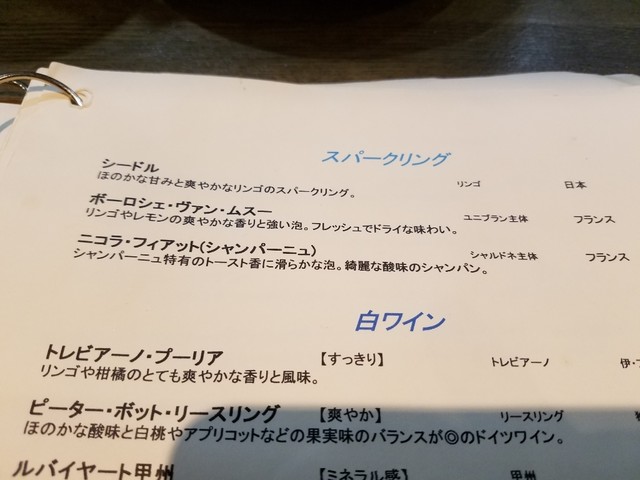 スパークリング
シードル
ほのかな甘みと爽やかなリンゴのスパークリング。 リンゴ 日本
ボーロシェ・ヴァン・ムスー
リンゴやレモンの爽やかな香りと強い泡。フレッシュでドライな味わい。 ユニブラン主体 フランス
ニコラ・フィアット(シャンパーニュ)
シャンパーニュ特有のトースト香に滑らかな泡。綺麗な酸味のシャンパン。 シャルドネ主体 フランス
白ワイン
トレビアーノ・プーリア 【すっきり】 トレビアーノ 伊・
リンゴや柑橘のとても爽やかな香りと風味。
ピーター・ボット・リースリング 【爽やか】 リースリング
ほのかな酸味と白桃やアプリコットなどの果実味のバランスが◎のドイツワイン。
ルバイヤート甲州 【ミネラル感】 甲州